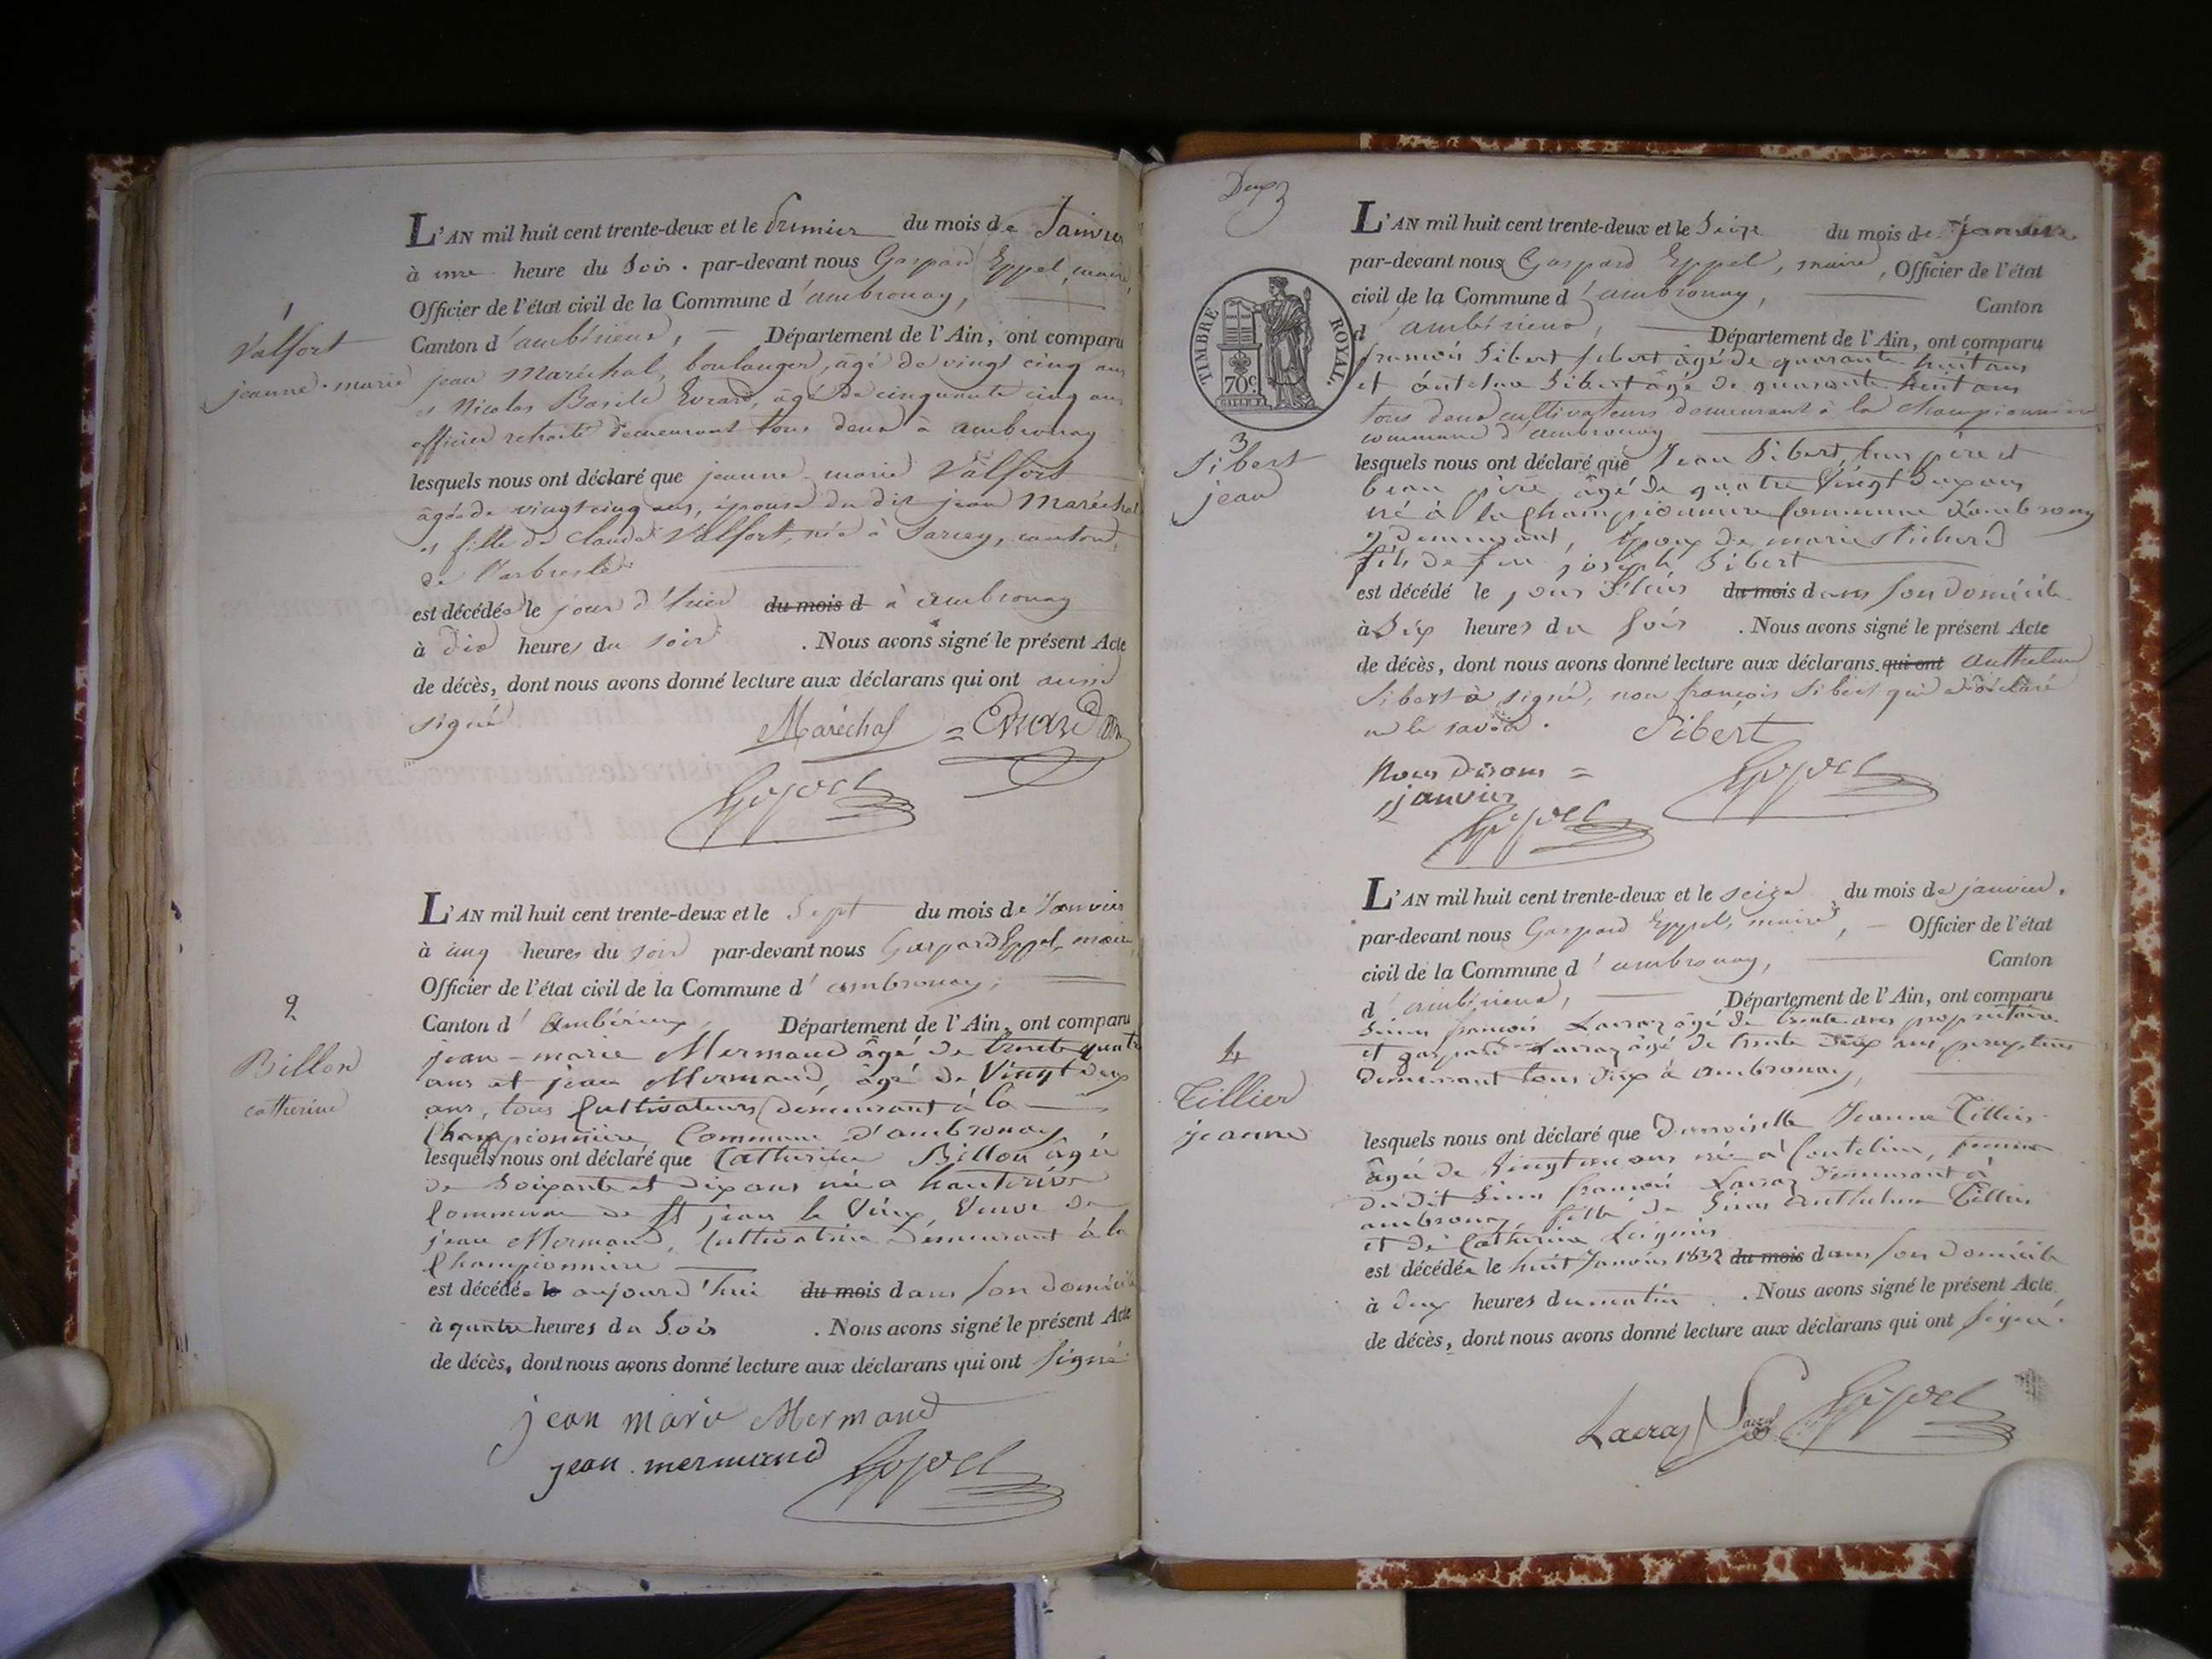 1
Valfort
jeanne-marie
L'AN mil huit cent trente-deux et le Premier du mois de Janvier
à une heure du Soir. par-devant nous Gaspard Eppel, maire,
Officier de l'état civil de la Commune d'ambronay,
Canton d'ambérieux, Département de l'Ain, ont comparu
jean Maréchal, boulanger, âgé de vingt cinq ans
et Nicolas Basile Evrard, âgé de cinquante cinq ans
officier retraité demeurant tous deux à ambronay
lesquels nous ont déclaré que jeanne-marie Valfort
âgée de vingt cinq ans, épouse du dit jean Maréchal
et fille de Claude Valfort, née à Sarcey, canton
de l'arbresle
est décédée le jour d'hier du mois d à ambronay
à dix heures du soir. Nous avons signé le présent Acte
de décès, dont nous avons donné lecture aux déclarans qui ont aussi
signé
Maréchal = Evrard
Eppel
2
Billon
catherine
L'AN mil huit cent trente-deux et le Sept du mois de Janvier
à cinq heures du soir par-devant nous Gaspard Eppel, maire
Officier de l'état civil de la Commune d'ambronay,
Canton d'Ambérieux, Département de l'Ain, ont comparu
jean-marie Mermand âgé de trente quatre
ans et jean Mermand, âgé de Vingt deux
ans, tous Cultivateurs demeurant à la
Championnière, Commune d'ambronay
lesquels nous ont déclaré que Catherine Billon âgée
de Soixante et dix ans née a hauterive
Commune de St jean le Vieux, Veuve de
jean Mermand, Cultivatrice demeurant à la
Championnière
est décédée le aujourd'hui du mois dans son domicile
à quatre heures du Soir. Nous avons signé le présent Acte
de décès, dont nous avons donné lecture aux déclarans qui ont signé
jean marie Mermand
jean mermand Eppel
Deux
TIMBRE ROYAL.
70c
3
Sibert
jean
L'AN mil huit cent trente-deux et le Seize du mois de janvier
par-devant nous Gaspard Eppel, maire, Officier de l'état
civil de la Commune d'ambronay, Canton
d'ambérieux, Département de l'Ain, ont comparu
françois Sibert âgé de quarante huit ans
et Antelme Sibert âgé de quarante huit ans
tous deux cultivateurs demeurant à la Championnière
commune d'ambronay
lesquels nous ont déclaré que Jean Sibert, leur père et
beau père âgé de quatre Vingt deux ans
né à la Championnière Commune d'ambronay
y demeurant, Epoux de marie
fils de feu joseph Sibert
est décédé le jour d'hier du mois dans son domicile
à Six heures du soir. Nous avons signé le présent Acte
de décès, dont nous avons donné lecture aux déclarans. qui ont anthelme
Sibert à signé, non françois Sibert qui a déclaré
ne le savoir. Sibert
Nous disons =
janvier Eppel
Eppel
4
Tillier
jeanne
L'AN mil huit cent trente-deux et le seize du mois de janvier.
par-devant nous Gaspard Eppel, maire, Officier de l'état
civil de la Commune d'ambronay, Canton
d'ambérieux, Département de l'Ain, ont comparu
Sieur françois Lacraz âgé de trente ans propriétaire
et gaspard Lacraz âgé de trente deux ans percepteur
demeurant tous deux à ambronay,
lesquels nous ont déclaré que Demoiselle Jeanne Tillier
âgée de Vingt ans née à Contelin, femme
du dit Sieur françois Lacraz demeurant à
ambronay, fille de Sieur Anthelme Tillier
et de Catherine
est décédée le huit Janvier 1832 du mois dans son domicile
à deux heures du matin. Nous avons signé le présent Acte
de décès, dont nous avons donné lecture aux déclarans qui ont signé.
Lacraz Eppel